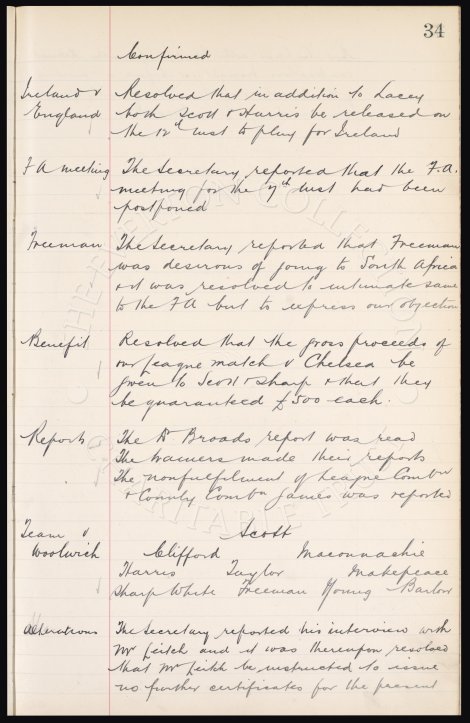 34
Confirmed
Ireland v Resolved that in addition to Lacey
England both Scott & Harris be released on
the 12th inst to play for Ireland
FA meeting The Secretary reported that the F.A.
meeting for the 7th inst had been
postponed
Freeman The Secretary reported that Freeman
was desirous of going to South Africa
& it was resolved to intimate same
to the FA but to express our objection
Benefit Resolved that the gross proceeds of
our League match v Chelsea be
given to Scott & Sharp & that they
be guaranteed £500 each.
Reports The Dr Broads report was read
The trainers made their reports
The nonfulfilment of League Combn
& County Combn games was reported
Team v Scott
Woolwich Clifford Maconnachie
Harris Taylor Makepeace
Sharp White Freeman Young Barlow
Alterations The Secretary reported his interview with
Mr Leitch and it was thereupon resolved
that Mr Leitch be instructed to issue
no further certificates for the present
THE EVERTON COLLECTION
CHARITABLE TRUST